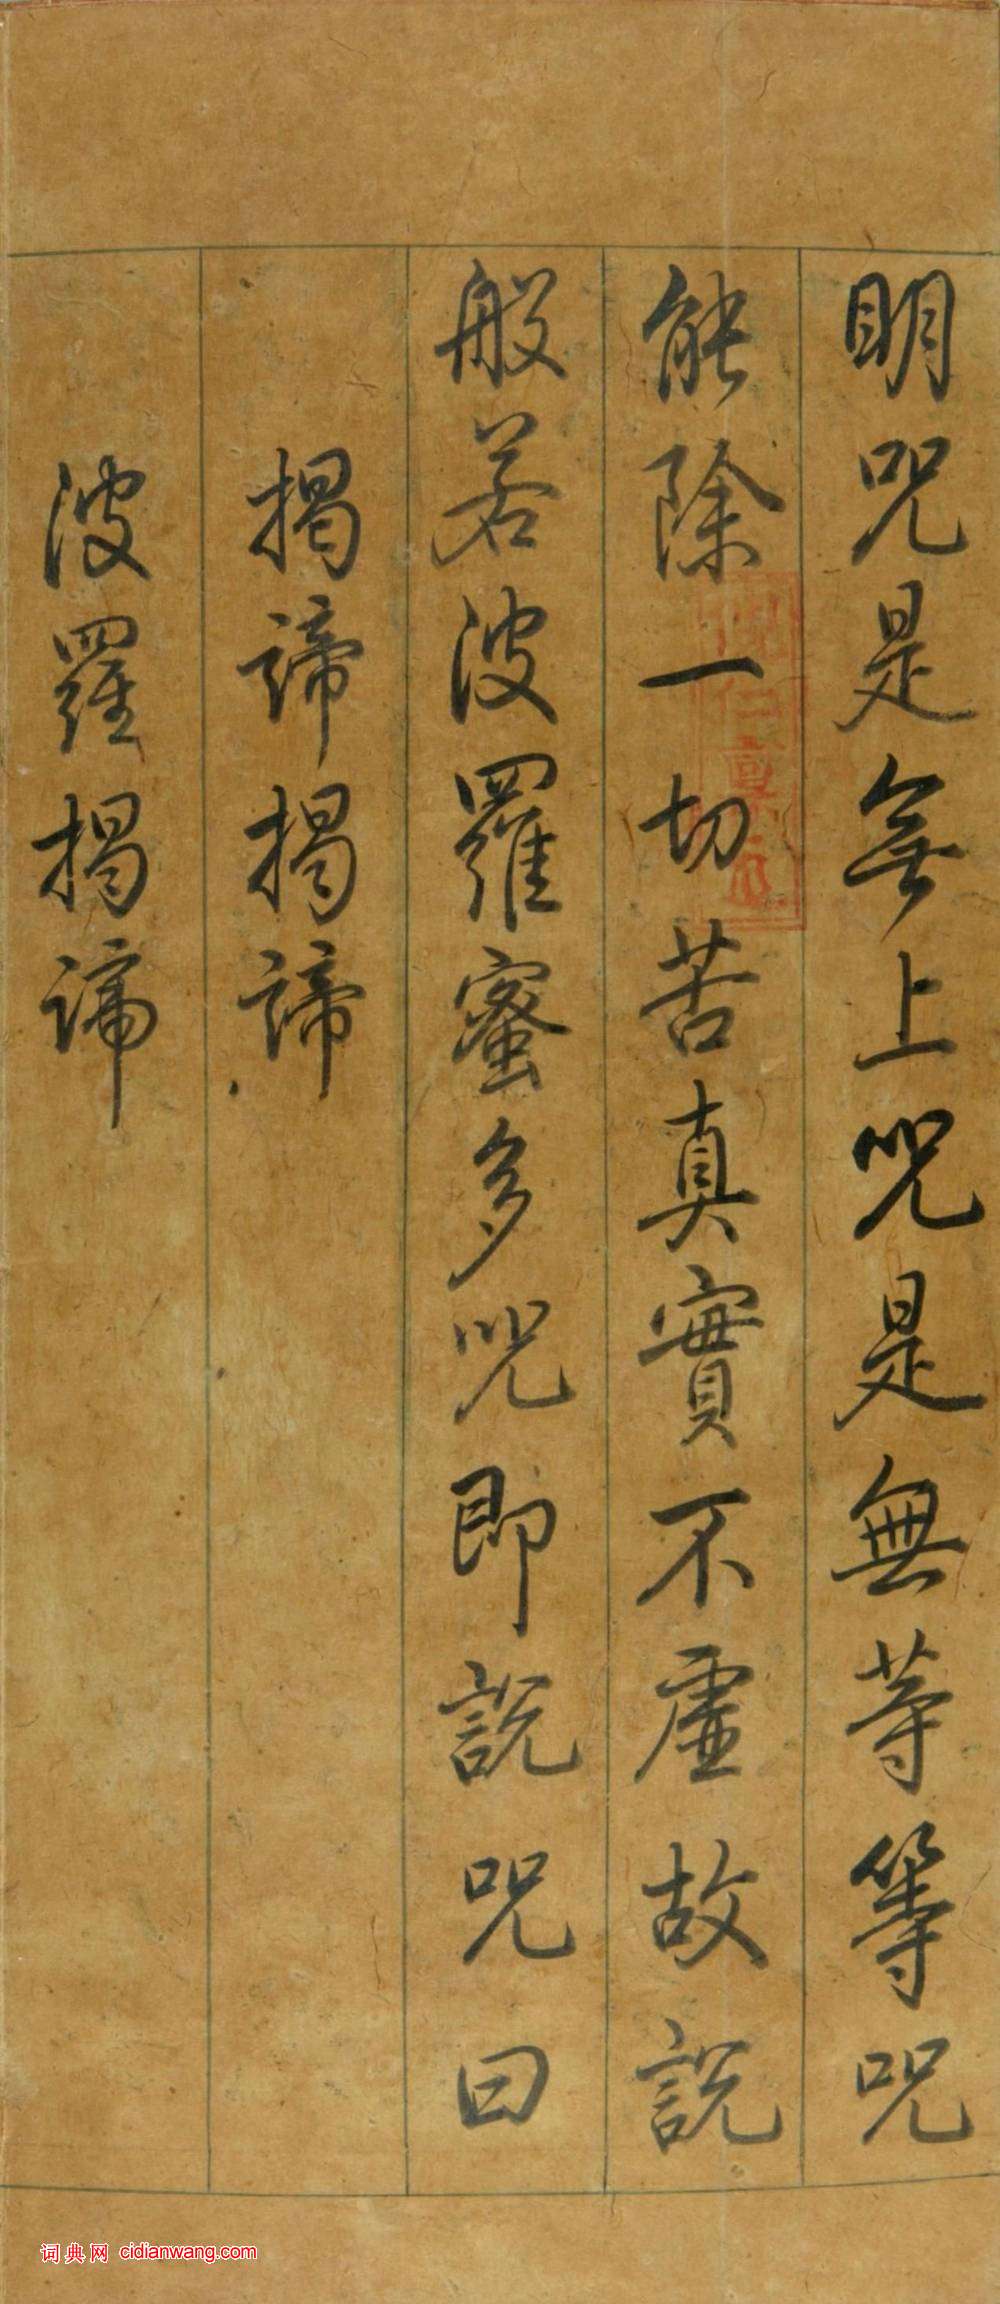 明咒是無上咒是無等等咒
能除一切苦真實不虛故說
般若波羅蜜多咒即說咒曰
揭諦揭諦
波羅揭諦
词典网 cidianwang.com